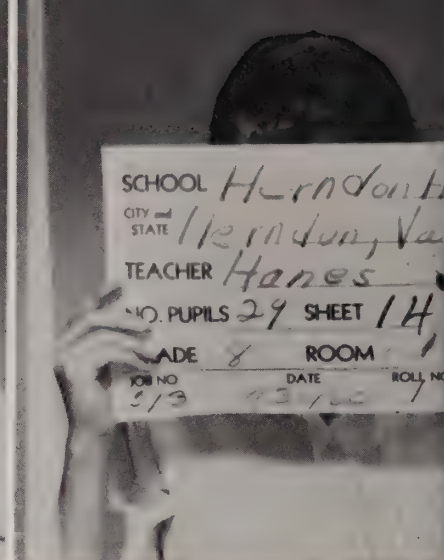 SCHOOL Herndon H
CITY and STATE Herndon, Va
TEACHER Hanes
NO. PUPILS 29 SHEET 14
ADE 8 ROOM
JOB NO DATE ROLL NO